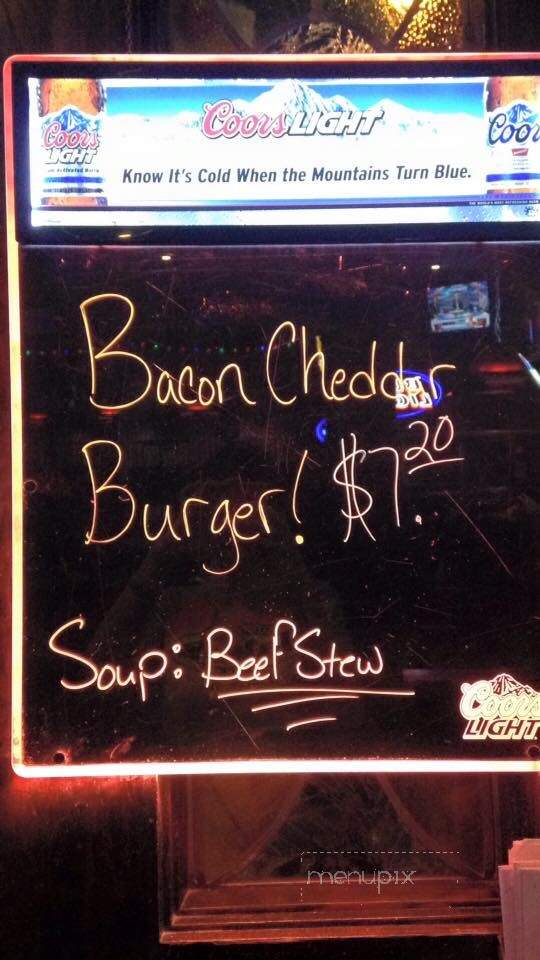 Coors LIGHT
Coors LIGHT
Coors
Know It's Cold When the Mountains Turn Blue.
Bacon Cheddar
Burger! $7.20
Soup: Beef Stew
Coors
LIGHT
menupix